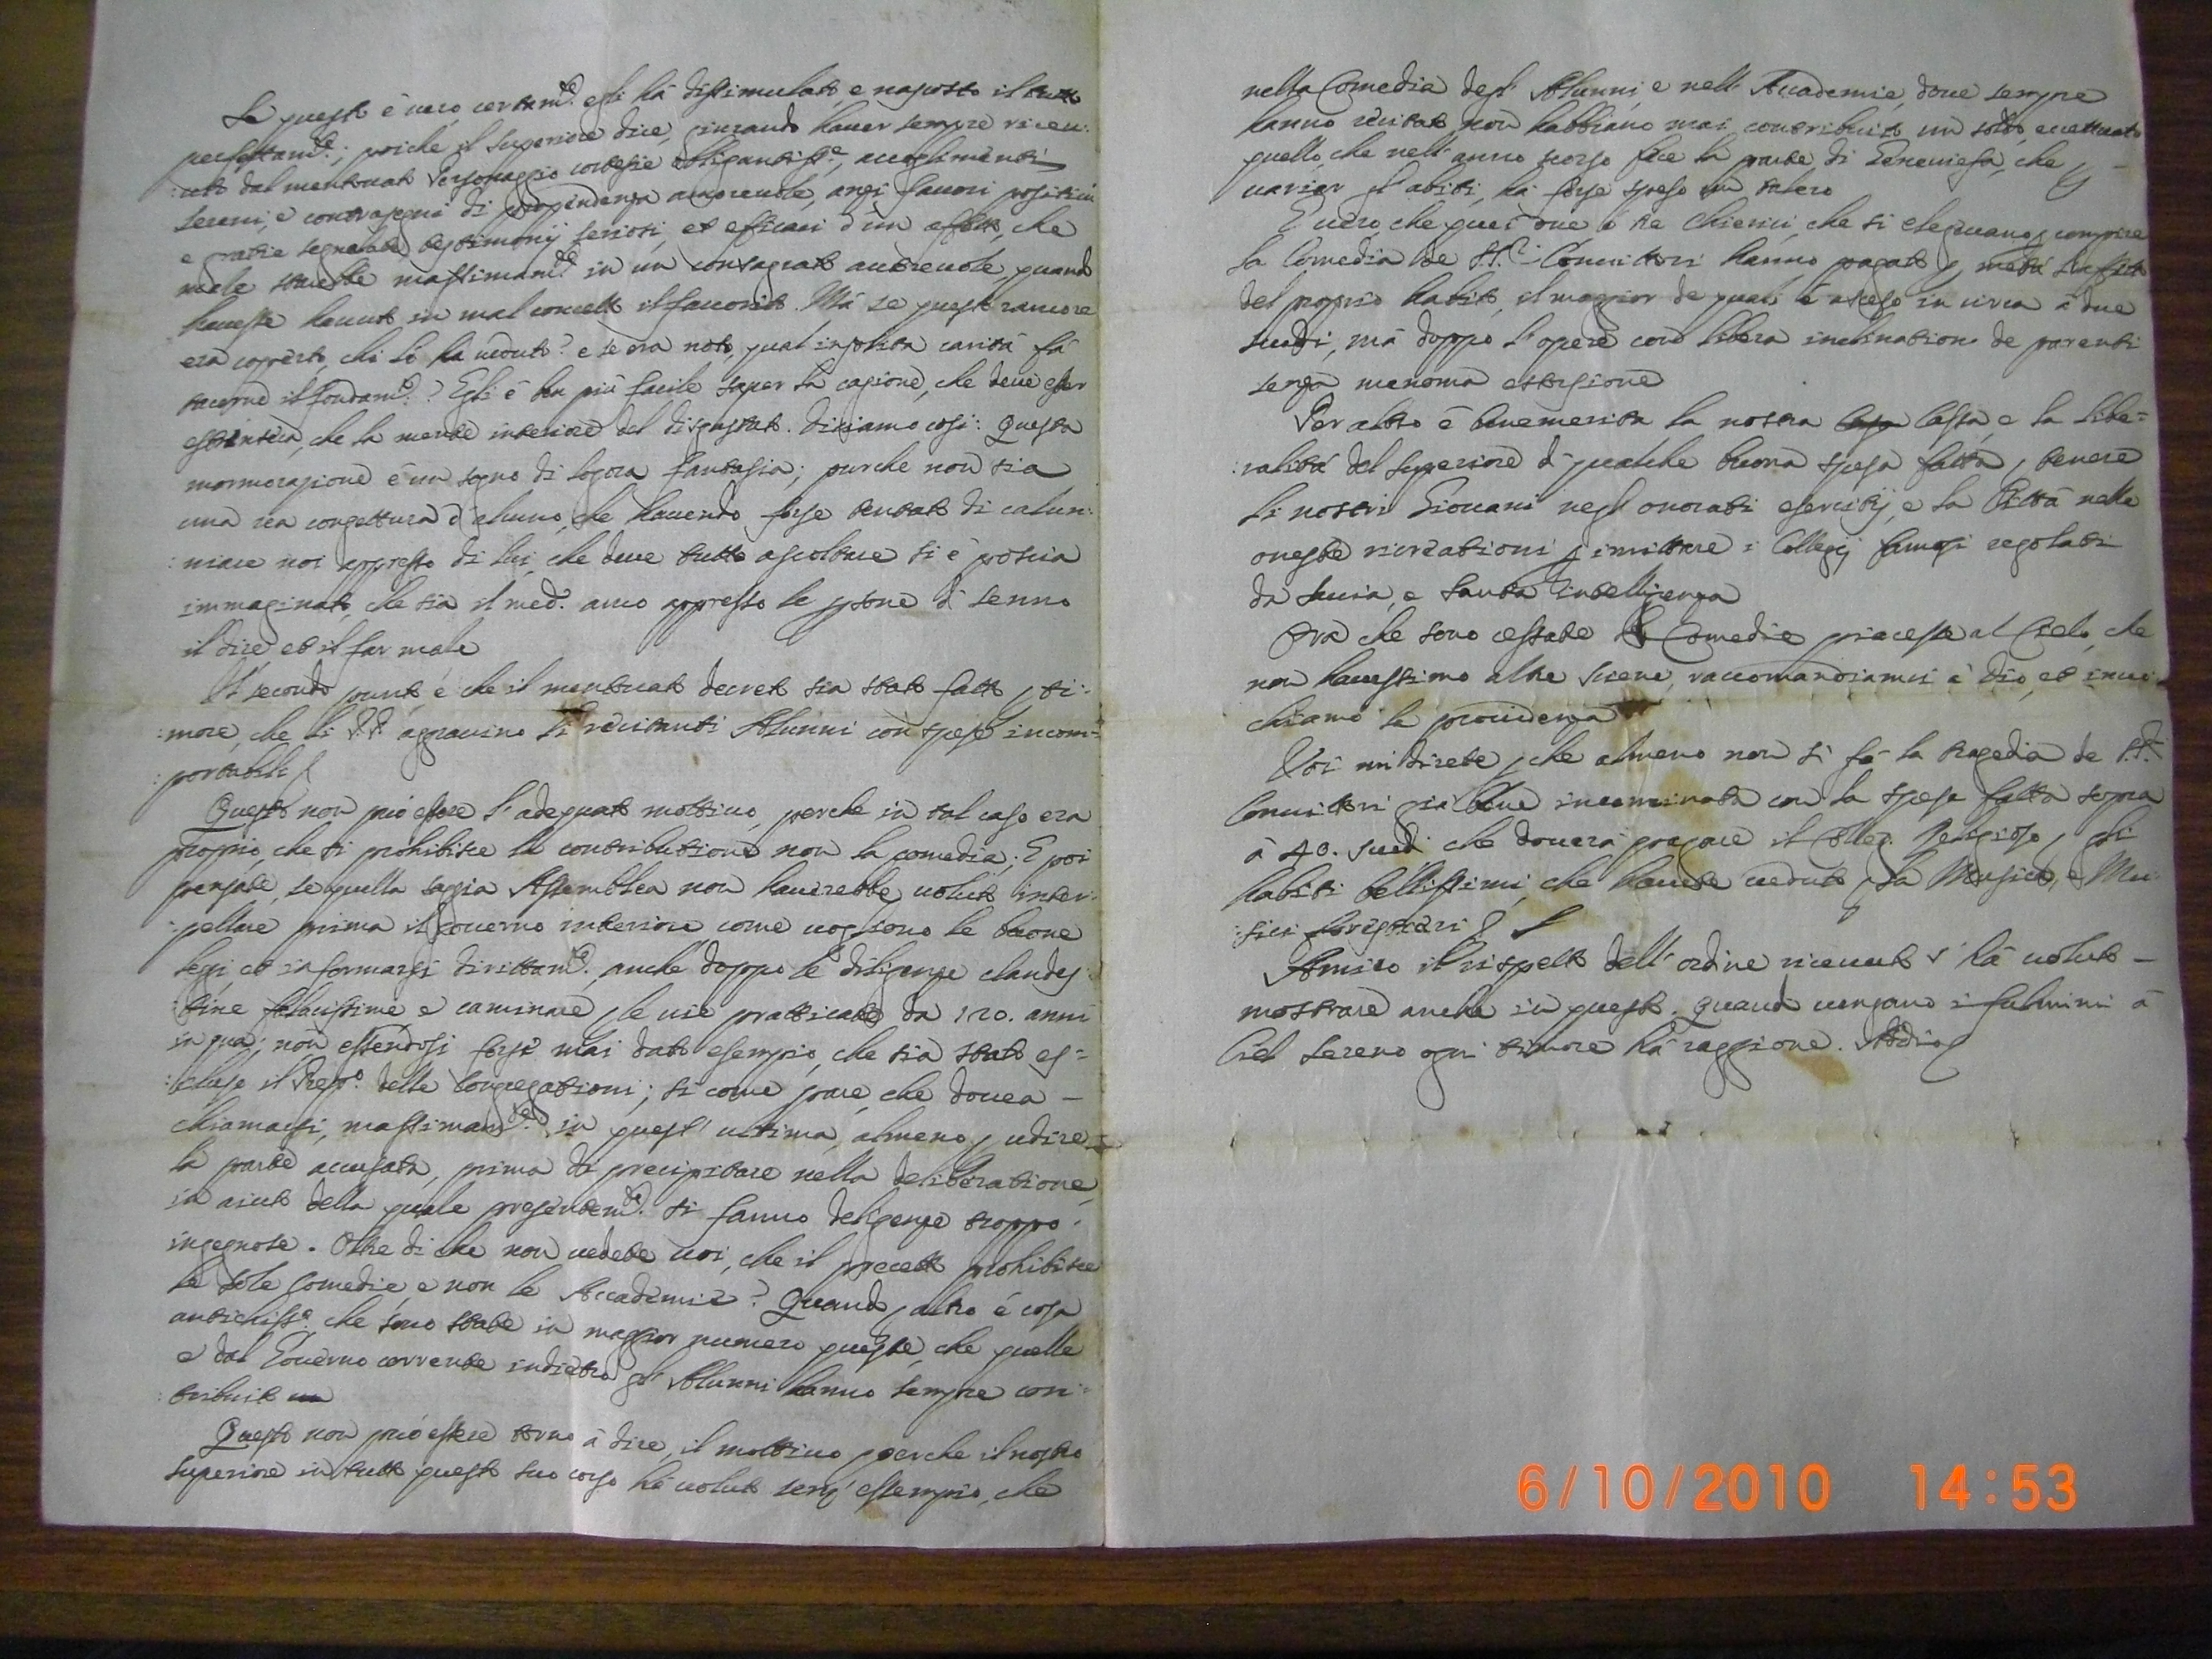 Se questo è vero, certam.te egli hà dissimulato, e nascosto il tutto
perfettam.te; poiche il Superiore dice, giurando haver sempre riceu:
:uto dal mentouato Personaggio cortesie obligantiss.e, accoglimenti
sereni, e contrasegni di propendenza amoreuole, anzi fauori positiui
e gratie segnalate testimonij seriosi, et efficaci d'un affetto, che
male starebbe massimam.te in un consagrato autreuole, quando
hauesse hauuto in mal concetto il fauorito. Mà se questo rancore
era coperto, chi lo hà ueduto? e se era noto, qual insolita carità fà
tacerne il fondam.to? Egli è ben più facile saper la cagione, che deue esser
estrinseca, che la mente interiore del disgustato. Diciamo così: Questa
mormorazione è un sogno di logora fantasia; purche non sia
una rea congettura d'alcuno, che hauendo forse tentato di calun:
:niare noi appresso di lui, che deue tutto ascoltare si è poscia
immaginato, che sia il med.o anco appresso le psone di senno
il dire et il far male
Il secondo punto è che il mentouato decreto sia stato fatto p ti:
:more, che li P.P. agrauino li recitanti Alunni con spese incom=
:portabili
Questo non può essere l'adequato mottiuo, perche in tal caso era
proprio, che si prohibisce la contributione non la comedia; E poi
pensate, se quella saggia Assemblea non hauerebbe uoluto inter:
:pellare prima il Gouerno interiore come uogliono le buone
leggi, et informarsi dirittam.te, anche doppo le diligenze clandes:
:tine fallacissime e caminare p le uie pratticate da 120. anni
in qua; non essendosi forse mai dato esempio, che sia stato es=
:cluso il Prep.o delle Congregationi; si come pare, che douea –
chiamarsi, massimam.te in quest'ultima, almeno p udire
la parte accusata, prima di precipitare nella deliberatione,
in aiuto della quale presentem.te si fanno deligenze troppo
ingegnose. Oltre di che non uedete uoi, che il precetto prohibisce
le sole Comedie, e non le Accademie? Quando p altro è cosa
antichiss.a che sono state in maggior numero queste, che quelle
e dal Gouerno corrente indietro gl'Alunni hanno sempre con:
:tribuito
Questo non può essere torno à dire, il mottiuo perche il nostro
superiore in tutto questo suo corso hà uoluto senz'essempio, che
nella Comedia degl'Alunni, e nell'Accademie, doue sempre
hanno recitato non habbiano mai contribuito un soldo, eccettuato
quello, che nell'anno scorso fece la parte di Geneuiefa, che p –
uariar gl'abiti, hà forse speso un talero
È uero, che quei due ò tre Chierici, che si eleguano p compire
la Comedia de SS.ri Conuittori hanno pagato p metà
del proprio habito, il maggior de quali è asceso in circa à due
scudi, mà doppo l'opere con libera inclinatione de parenti
senza menoma estorsione
Per altro è benemerita la nostra Cassa, e la libe=
:ralità del superiore d'qualche buona spesa fatta p tenere
li nostri Giouani negl'onorati esercitij, e la Città nelle
oneste ricreationi p imittare i Collegij famosi regolati
da sauia, e santa intelligenza
Ora che sono cessate le Comedie piacesse al Cielo, che
non hauessimo altre scene, raccomandiamci à Dio, et inui
chiamo la prouidenza
Voi mi direte p che almeno non si fà la tragedia de SS.ri
Conuittori già bene incominciata con la spesa fatta sopra
à 40. scudi che douerà pagare il Colleg. Religioso p gli
habiti bellissimi, che hauete ueduto p la Musica, e Mu
:sici foregstieri?
Amico il rispetto dell'ordine riceuuto s'hà uoluto –
mostrare anche in questo. Quando uengano i fulmini à
Ciel sereno ogni timore hà raggione. Addio
6/10/2010 14:53